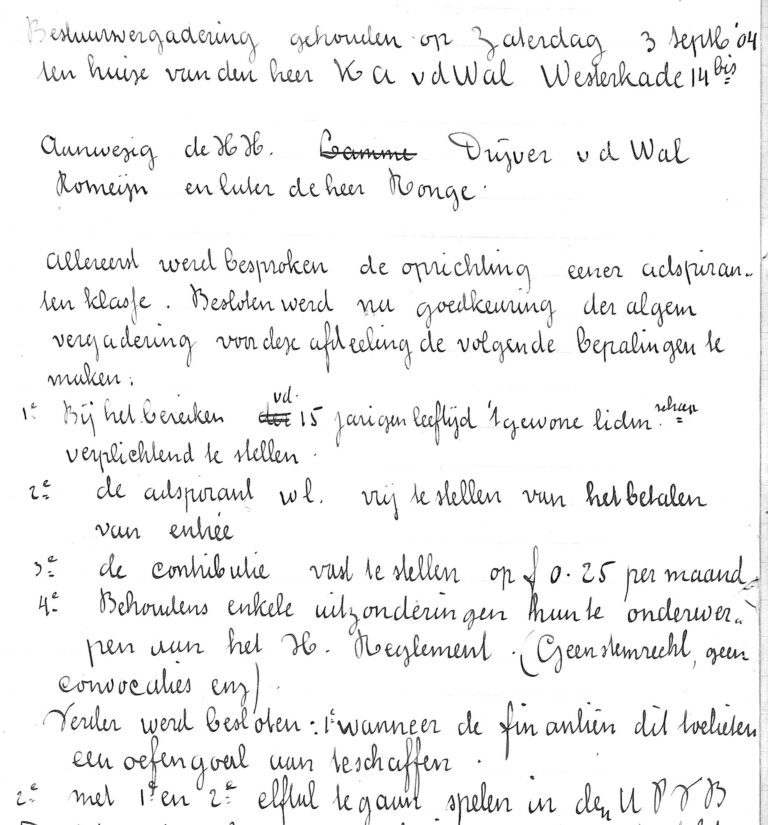 Bestuursvergadering gehouden op Zaterdag 3 Septb '04
ten huize van den heer K A vd Wal Westerkade 14 bis
Aanwezig de HH. Drijver v d Wal
Romeijn en later de heer Ronge.
Allereerst werd besproken de oprichting eener adspiran-
ten klasse. Besloten werd na goedkeuring der algem
vergadering voor deze afdeeling de volgende bepalingen te
maken:
1e Bij het bereiken der vd. 15 jarigen leeftijd 't gewone lidm. schap
verplichtend te stellen.
2e de adspirant wl. vrij te stellen van het betalen
van entrée
3e de contributie vast te stellen op f 0.25 per maand
4e Behoudens enkele uitzonderingen hun te onderwer-
pen aan het H. Reglement. (Geen stemrecht, geen
convocaties enz).
Verder werd besloten: 1e wanneer de finantiën dit toelieten
een oefengoal aan te schaffen.
2e met 1e en 2e elftal te gaan spelen in den U P V B